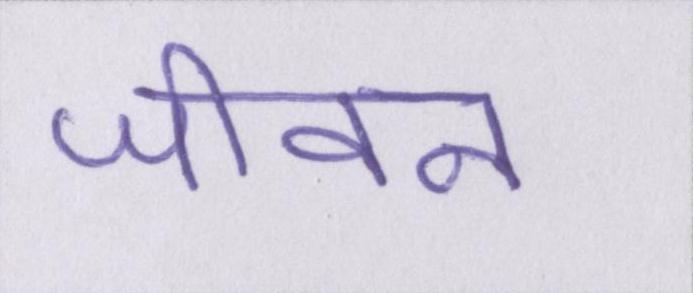 जीवन